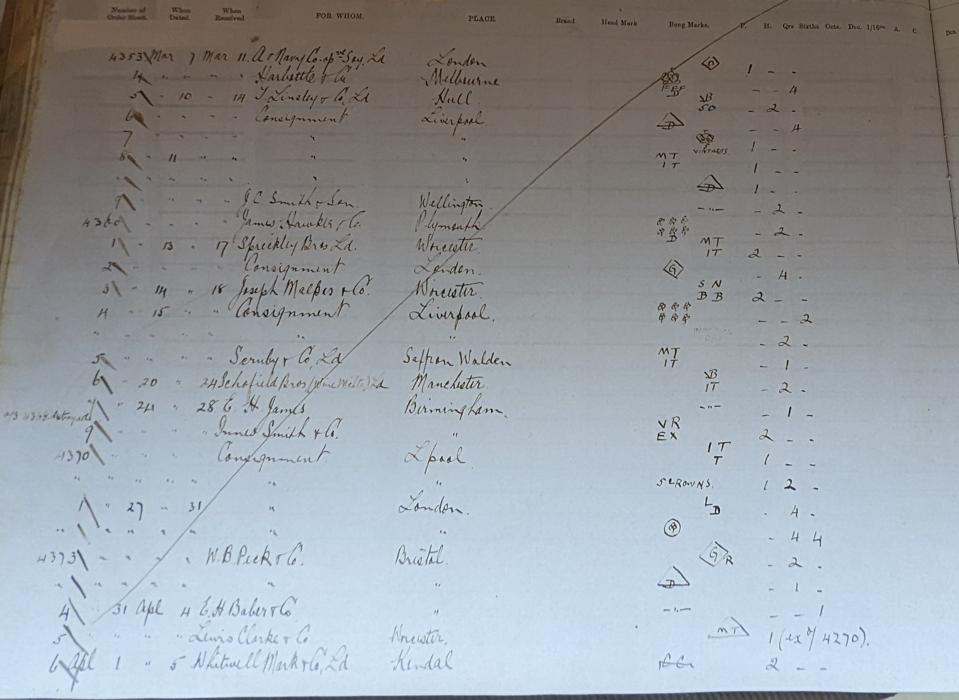 Number of Order Sheet. When Dated. When Received. FOR WHOM. PLACE. Brand Head Mark Bung Marks. P. H. Qrs Sixths Octs. Dec. 1/16ths A. C.
4353 Mar 7 Mar 11. A & Navy Co-op Socy, Ld London 1 - -
4 " " " Harbottle & Co Melbourne - - 4
5 - 10 - 14 T. Linsley & Co, Ld Hull VB SO - 2 -
6 " " " " Consignment Liverpool D - - 4
7 " " " " " " 1 - -
8 - 11 " " " " MT IT 1 - -
" " " " " " " D 1 - -
9 " " " " J.C. Smith & Son Wellington - 2 -
4360 " " " " James Hawker & Co. Plymouth - 2 -
1 - 13 - 17 Spreckley Bros Ld. Worcester MT IT 2 - -
2 " " " " Consignment London. G - 4 -
3 - 14 " 18 Joseph Malpas & Co. Worcester SN BB 2 - -
4 - 15 " " Consignment Liverpool. - - 2
" " " " " " " - 2 -
5 " " " " Scruby & Co, Ld Saffron Walden MT IT - 1 -
6 - 20 " 24 Schofield Bros (Wine Mchts) Ld Manchester VB IT - 2 -
- 24 " 28 E. H. James Birmingham. - 1 -
9 " " " " Innes Smith & Co. " VR EX 2 - -
4370 " " " " Consignment L'pool IT T 1 - -
" " " " " " " 5 CROWNS 1 2 -
1 - 27 - 31 " London. LD - 4 -
" " " " " " " B - 4 4
4373 " " " " W.B. Peck & Co. Bristol GR - 2 -
" " " " " " " D - 1 -
4 31 Apl 4 E. H Baber & Co " - - 1
5 " " " Lewis Clarke & Co Worcester. MT 1 (ex 4270).
6 Apl 1 " 5 Whitwell Mark & Co, Ld Kendal 2 - -